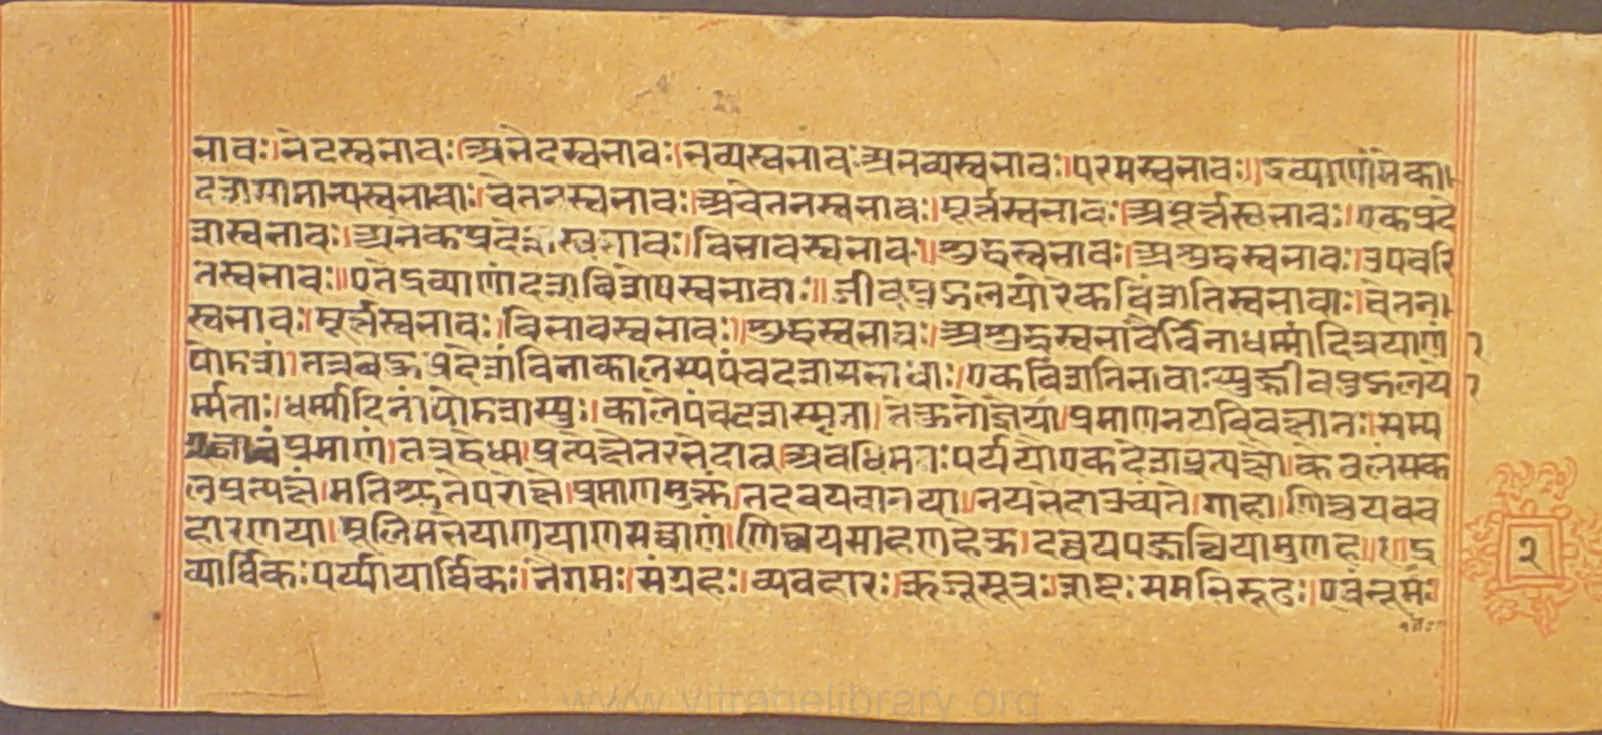 भावः।भेदस्वभावः।अभेदस्वभावः।भव्यस्वभावः अभव्यस्वभावः।परमस्वभावः॥द्रव्याणामेका
दशसामान्यस्वभावाः।चेतनस्वभावः।अचेतनस्वभावः।मूर्त्तस्वभावः।अमूर्त्तस्वभावः।एकप्रदे
शस्वभावः।अनेकप्रदेशस्वभावः।विभावस्वभावः॥शुद्धस्वभावः।अशुद्धस्वभावः।उपचरि
तस्वभावः॥एतेद्रव्याणांदशविशेषस्वभावाः॥जीवपुद्गलयोरेकविंशतिस्वभावाः।चेतन
स्वभावः।मूर्त्तस्वभावः।विभावस्वभावः॥शुद्धस्वभावः।अशुद्धस्वभावैर्विनाधर्म्मादित्रयाणां
षोडश।तत्रबहुप्रदेशंविनाकालस्यपंचदशस्वभावाः।एकविंशतिभावाःस्युर्जीवपुद्गलयो
र्म्मताः।धर्म्मादिनांषोडशस्युः।कालेपंचदशस्मृता।तेकुतोज्ञेयाः।प्रमाणनयविवक्षातः।सम्य
ग्ज्ञानंप्रमाणं।तत्रद्वेधा।प्रत्यक्षेतरभेदात्।अवधिमनःपर्ययोएकदेशप्रत्यक्षौ।केवलंसक
लप्रत्यक्षं।मतिश्रुतेपरोक्षे।प्रमाणमुक्तं।तदवयवानया॥नयभेदाउच्यंते।गाहा।णिच्छयवव
हारणया।मूलिमभेयाणयाणसव्वाणं।णिच्छयसाहणहेऊ।दव्वयपज्जच्छियामुणह॥१॥द्र
व्यार्थिकःपर्य्यायार्थिकः।नैगमः।संग्रहः।व्यवहारः।ऋजुसूत्रः।शब्दःसमभिरूढः।एवंभूतः
२
www.vitragelibrary.org